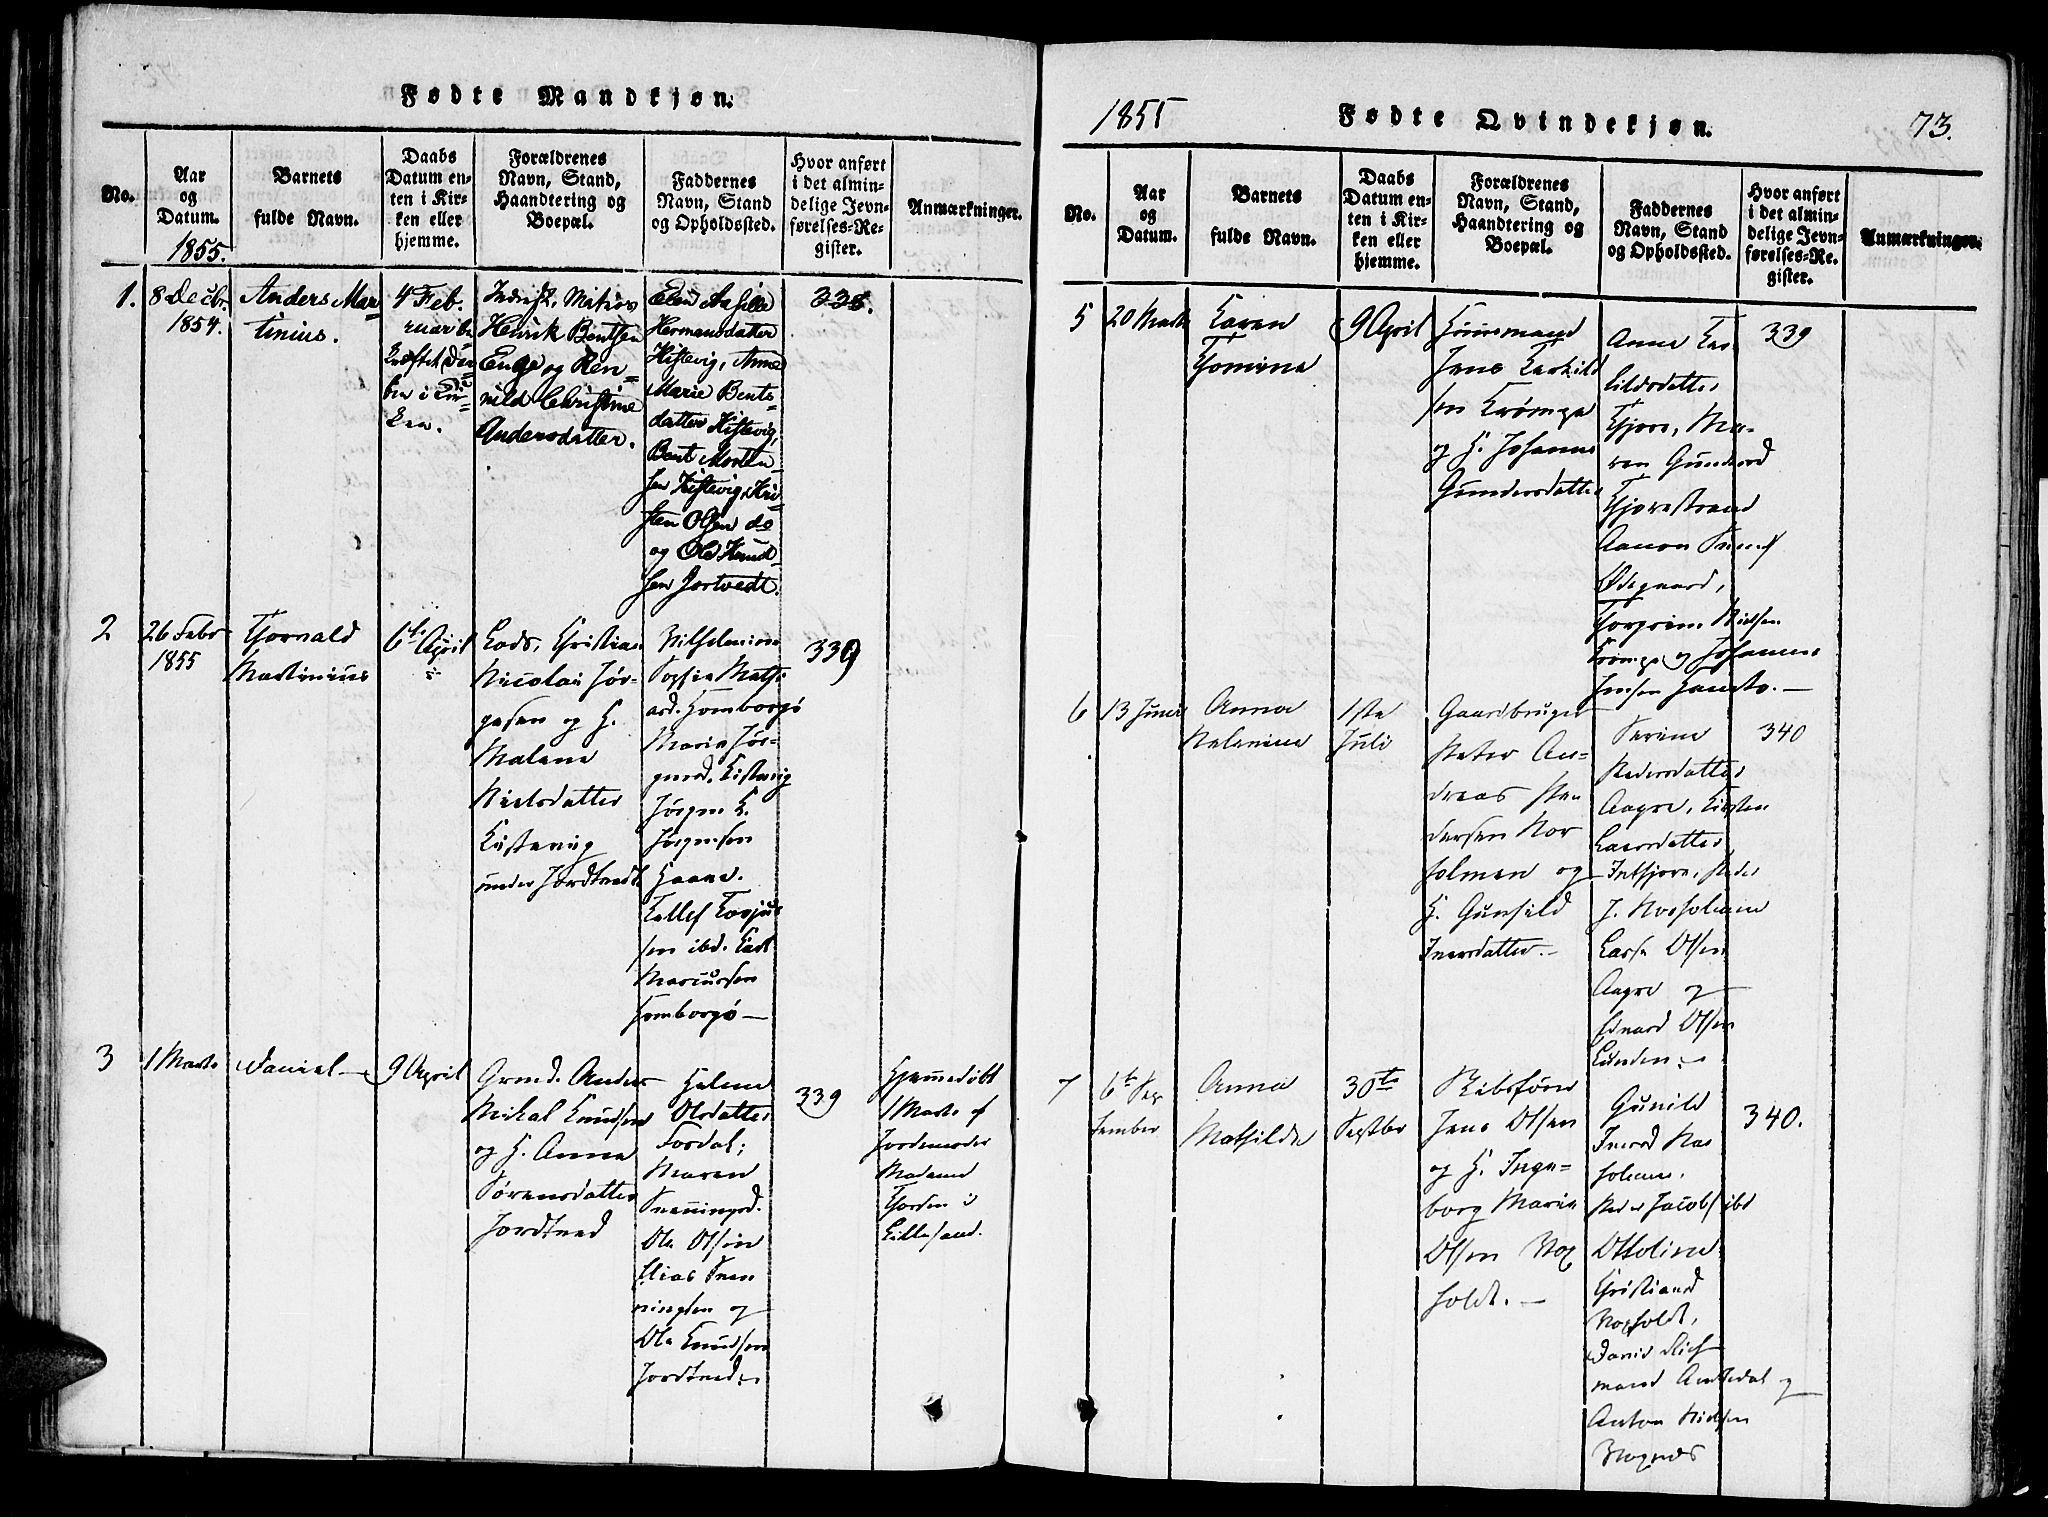 Fødte Mandkjøn.
No.
Aar
og
Datum.
1855.
Barnets
fulde Navn.
Daabs
Datum en-
ten i Kir-
ken eller
hjemme.
Forældrenes
Navn, Stand,
Haandtering og
Boepæl.
Faddernes
Navn, Stand
og Opholdssted.
Hvor anført
i det almin-
delige Jevn-
førelses-Re-
gister.
Anmærkninger.
1.
8 Decbr
1854.
Anders Mar-
tinius.
4 Feb.
i Kir-
ken.
Henrik Bentsen
Enge og Ren-
nild Christine
Andersdatter.
338.
Hermansdatter
Kistevig, Anne
Marie Bents-
datter Kistevig,
Bent Morten-
sen Kistevig, Kri-
sten Olsen do
og Ole Knud-
sen Jortvedt.
2
26 Febr
1855
Thorvald
Martinius
6te April
Lods, Christian
Nicolai Jør-
gesen og H.
Malene
Nielsdatter
Kistevig
under Jordtvedt
Sophia Maths
ard. Homborgø
Maria Jør-
gensd. Kistevig
Jørgen H.
Jørgensen
Kallef
sen ibd. Carl
Marcussen
Homborgø —
339
3
1 Marts
Daniel —
9 April
Grmd. Anders
Mikal Knudsen
og H. Anna
Sørensdatter
Jordtved
Helene
Olsdatter
Fosdal;
Maren
Svenningsd.
Ole Olsen
Elias Sven
ningsen og
Ole Knudsen
Jordtved.
339
Hjemmedøbt
1 Marts af
Jordemoder
Madame
Thorsen i
Lillesand.
1855
Fødte Qvindekjøn.
73.
No.
Aar
og
Datum.
Barnets
fulde Navn.
Daabs
Datum en-
ten i Kir-
ken eller
hjemme.
Forældrenes
Navn, Stand,
Haandtering og
Boepæl.
Faddernes
Navn, Stand
og Opholdssted.
Hvor anført
i det almin-
delige Jevn-
førelses-Re-
gister.
Anmærkninger.
5
20 Marts
Karen
Thomine
9 April
Huusmand
Jens Terkild
sen Krømpe
og H. Johanne
Gundersdatter
Anne Ter
kildsdatter
Fjære, Ma-
ren Gundersd
Fjærestrand
Aanon
Ødegaard,
Thorgrim Nielsen
Krømpe og Johannes
Jensen
339
6
13 Juni
Anna
Nelenine
1ste
Juli
Gaardbruger
Peter An-
dreas Pe
dersen Nor
holmen og
H. Gunhild
Iversdatter. —
Serine
Pedersdatter
Aagre, Kirsten
Larsdatter
Indfjære, Peder
J. Norholmen
Lars Olsen
Aagre og
Edvard Olsen
Lunden.
340
7
6te Sep
tember
Anna
Mathilde
30te
Septbr
Skibsfører
Jens Olsen
og H. Inge-
borg Marie
Olsen Nox
holdt. —
Gunild
Iversd Nor
holmen.
Peder Jacobs ibd
Ottoline
Christiansd
Noxholdt,
David Rich
mand Amtedal og
Anton Nielsen
340.